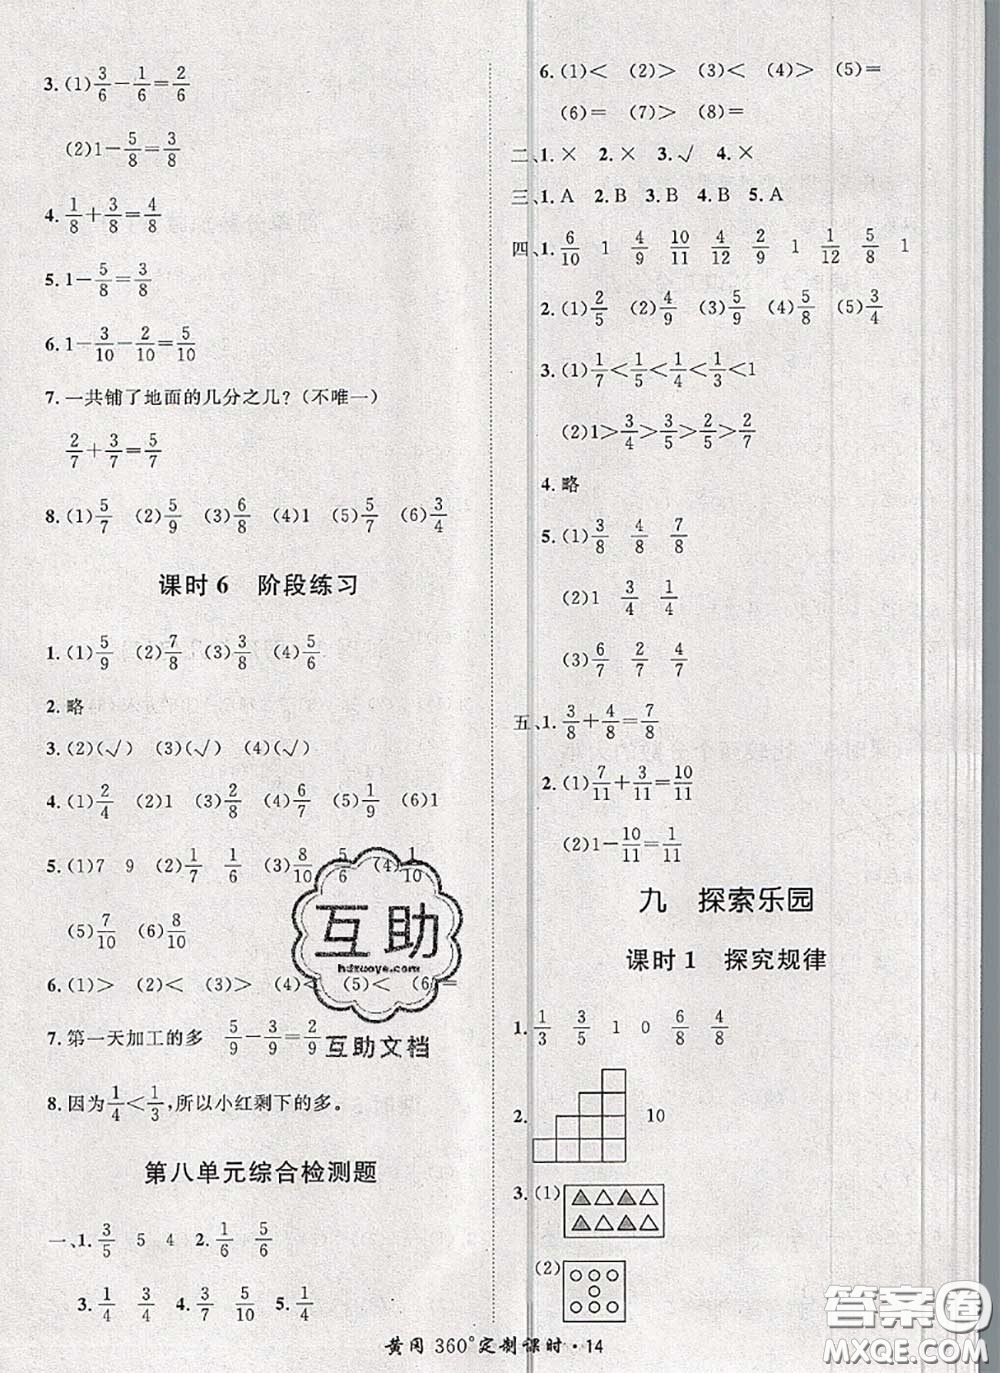 3.(1)3/6-1/6=2/6
(2)1-5/8=3/8
4.1/8+3/8=4/8
5.1-5/8=3/8
6.1-3/10-2/10=5/10
7.一共铺了地面的几分之几?(不唯一)
2/7+3/7=5/7
8.(1)5/7 (2)5/9 (3)6/8 (4)1 (5)5/7 (6)3/4
课时6 阶段练习
1.(1)5/9 (2)7/8 (3)3/8 (4)5/6
2.略
3.(2)(√) (3)(√) (4)(√)
4.(1)2/4 (2)1 (3)2/8 (4)6/7 (5)1/9 (6)1
5.(1)7 9 (2)1/7 1/6 (3)8/10 5/6 (4)1/10
(5)7/10 (6)8/10
6.(1)> (2)< (3)> (4)< (5)< (6)=
7.第一天加工的多 5/9-3/9=2/9
8.因为1/4<1/3,所以小红剩下的多。
第八单元综合检测题
一、1.3/5 5 4 2.1/6 5/6
3.1/4 3/4 4.3/7 5/10 5.1/4
6.(1)< (2)> (3)< (4)> (5)=
(6)= (7)> (8)=
二、1.× 2.× 3.√ 4.×
三、1.A 2.B 3.B 4.B 5.A
四、1.6/10 1 4/9 10/11 4/12 2/9 1 1/12 5/8 1
2.(1)2/5 (2)4/9 (3)5/9 (4)5/8 (5)3/4
3.(1)1/7<1/5<1/4<1/3<1
(2)1>3/4>3/5>2/5>2/7
4.略
5.(1)3/8 4/8 7/8
(2)1 3/4 1/4
(3)6/7 2/7 4/7
五、1.3/8+4/8=7/8
2.(1)7/11+3/11=10/11
(2)1-10/11=1/11
九 探索乐园
课时1 探究规律
1.1/3 3/5 1 0 6/8 4/8
2. 10
3.(1)
(2)
互助
hdzuoye.com
互助文档
黄冈 360°定制课时·14
答案圈
MXQE.COM